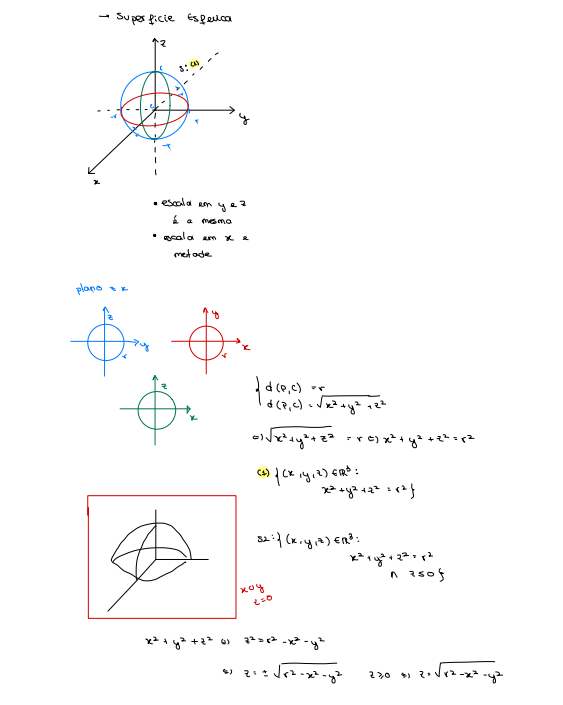 → Superfície Esférica
z
S: (1)
r
r
c
y
-r
r
r
-r
x
• escala em y e z
é a mesma
• escala em x e
metade
plano z x
z
y
r
y
x
r
z
x
r
{ d(P,C) = r
d(P,C) = √x² + y² + z²
⇔ √x² + y² + z² = r ⇔ x² + y² + z² = r²
(1) { (x, y, z) ∈ ℝ³ :
x² + y² + z² = r² }
S2: { (x, y, z) ∈ ℝ³ :
x² + y² + z² = r²
∧ z ≤ 0 }
x O y
z = 0
x² + y² + z² ⇔ z² = r² - x² - y²
⇔ z = ± √r² - x² - y² z ≥ 0 ⇔ z = √r² - x² - y²